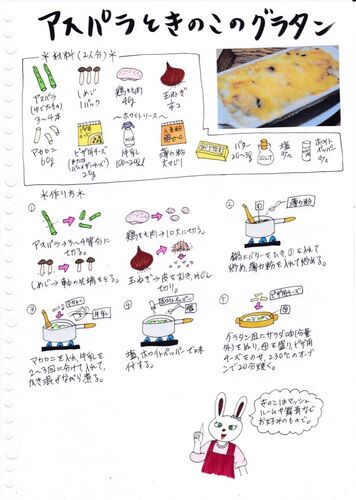 アスパラときのこのグラタン
＊材料(2人分)＊
アスパラ
(ゆでたもの)
3〜4本
しめじ
1パック
鶏もも肉
40g
玉ねぎ
マカロニ
60g
ピザ用チーズ
〜ホワイトソース〜
牛乳
薄力粉
大さじ1
バター
塩
少々
ホワイト
ペッパー
少々
BUTTER
SALT
＊作り方＊
①
アスパラ→3〜4等分に
切る。
しめじ→軸の先端をそる。
鶏もも肉→1口大に切る。
玉ねぎ→皮をむき、みじん
切り。
②
薄力粉
鍋にバターをひき、①を入れて
炒め、薄力粉を入れて炒める。
③
マカロニ
牛乳
マカロニを入れ、牛乳を
2〜3回に分けて入れて、
かき混ぜながら煮る。
④
ホワイトペッパー
塩
塩、ホワイトペッパーで味
付する。
⑤
ピザ用チーズ
グラタン皿にサラダ油(分量
外)をぬり、④を盛り、ピザ用
チーズをのせ、230℃のオーブ
ンで20分焼く。
きのこはマッシュ
ルームや舞茸など
お好みのもので。